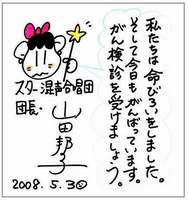 私たちは命びろいをしました。
そして今日もがんばっています。
がん検診を受けましょう。
スター混声合唱団
団長・山田邦子
2008.5.30